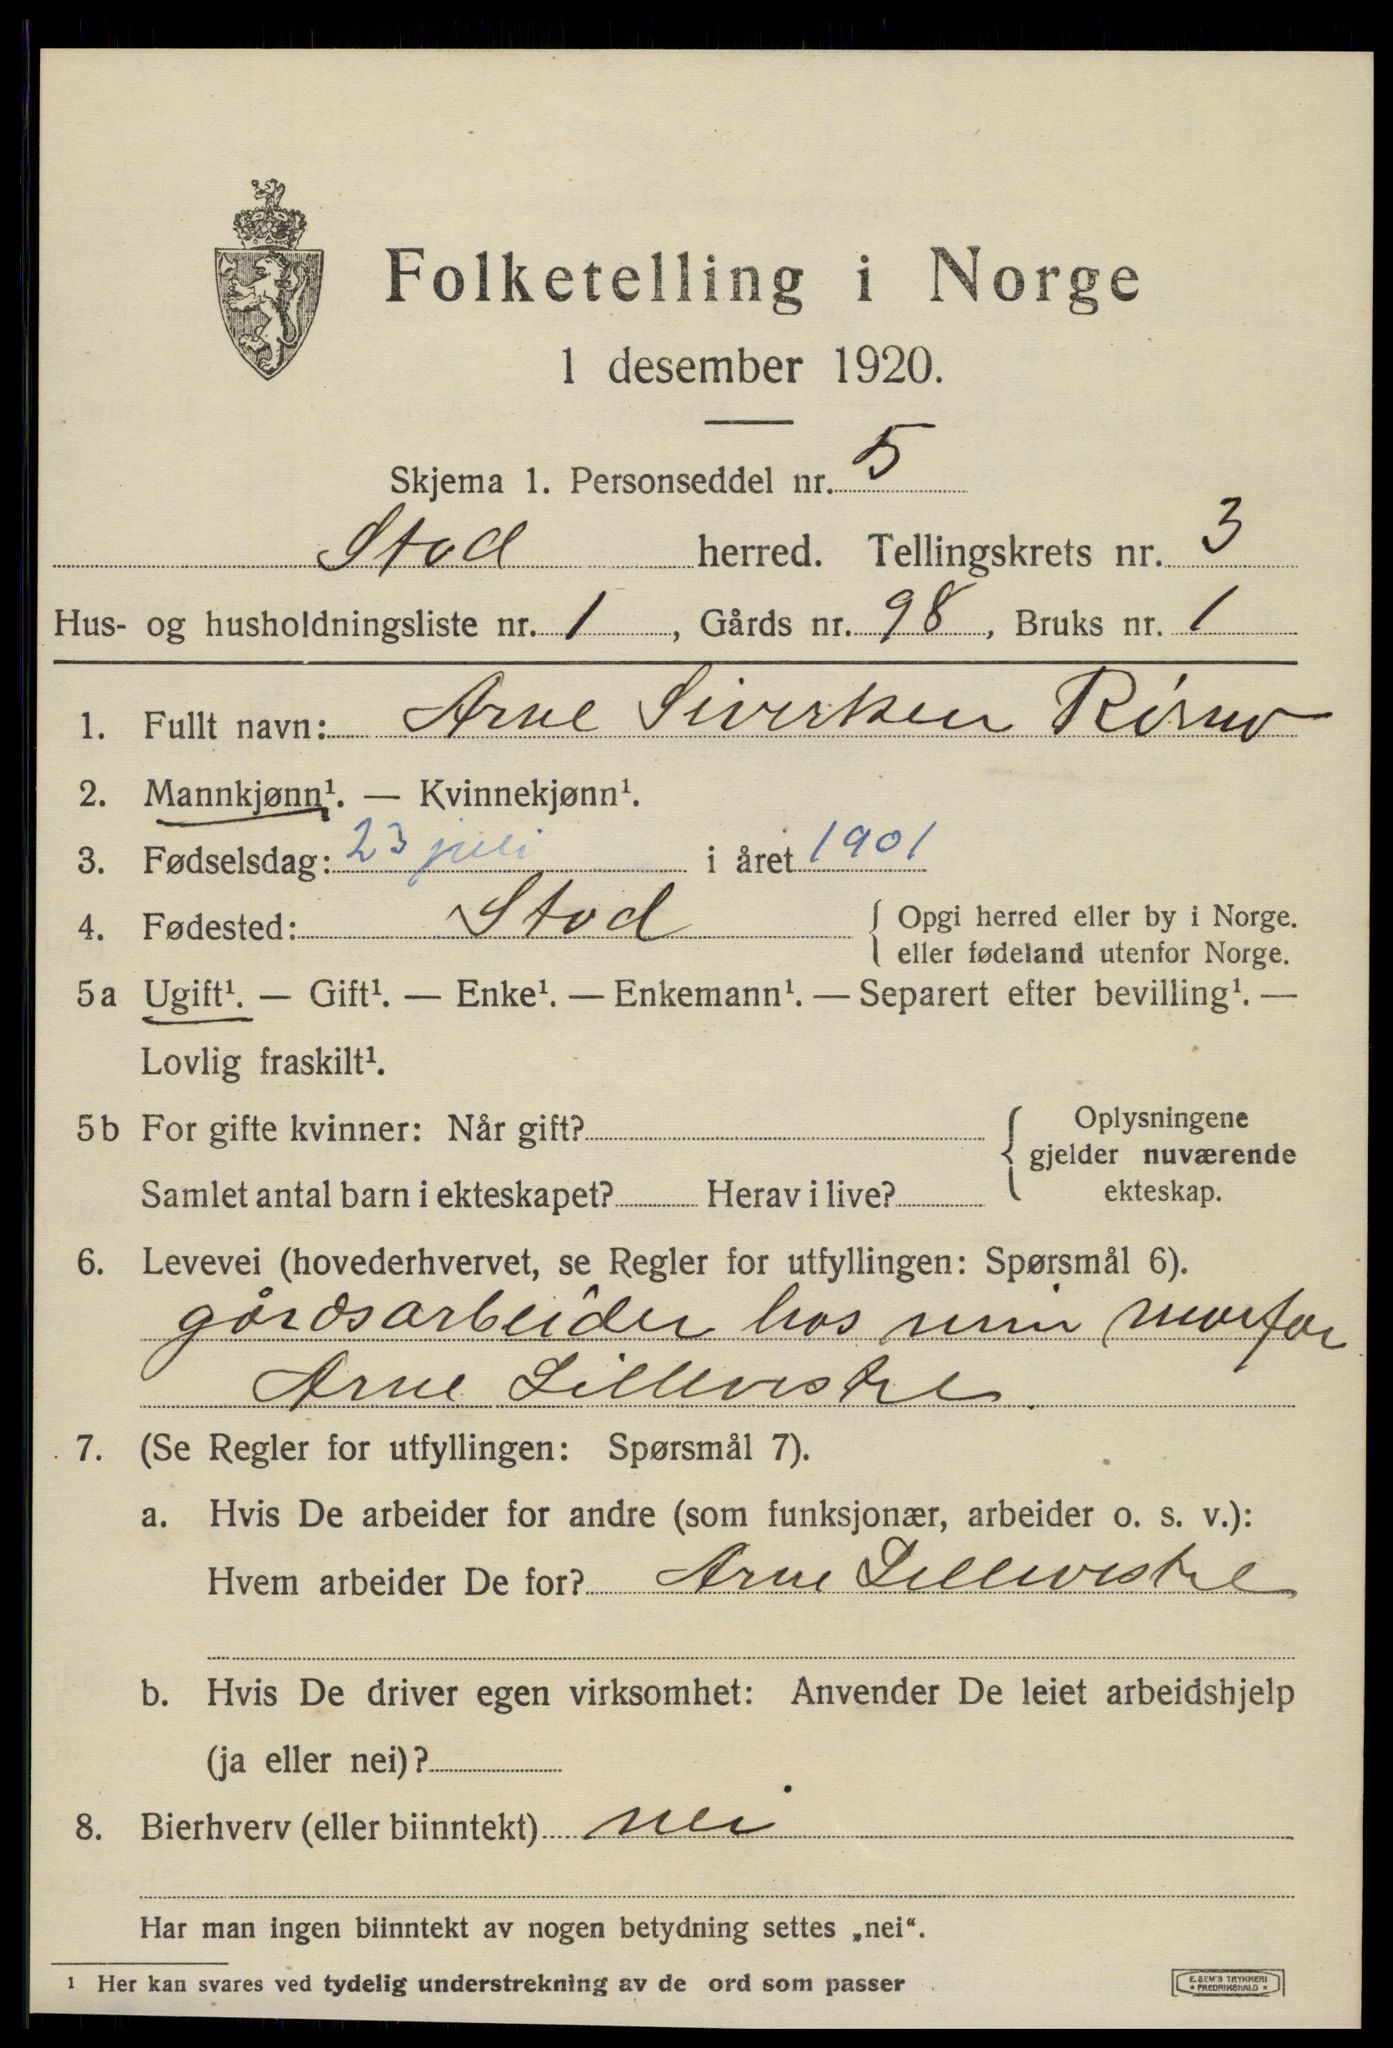 Folketelling i Norge
1 desember 1920.
Skjema 1. Personseddel nr. 5
Stod herred. Tellingskrets nr. 3
Hus- og husholdningsliste nr. 1, Gårds nr. 98, Bruks nr. 1
1. Fullt navn: Arne Siversen
2. Mannkjønn¹. — Kvinnekjønn¹.
3. Fødselsdag: 23 juli i året 1901
4. Fødested: Stod { Opgi herred eller by i Norge.
eller fødeland utenfor Norge.
5a Ugift¹. — Gift¹. — Enke¹. — Enkemann¹. — Separert efter bevilling¹. —
Lovlig fraskilt¹.
5b For gifte kvinner: Når gift? { Oplysningene
gjelder nuværende
Samlet antal barn i ekteskapet? Herav i live? ekteskap.
6. Levevei (hovederhvervet, se Regler for utfyllingen: Spørsmål 6).
gårdsarbeider hos min morfar
Arne Lillevestre.
7. (Se Regler for utfyllingen: Spørsmål 7).
a. Hvis De arbeider for andre (som funksjonær, arbeider o. s. v.):
Hvem arbeider De for? Arne Lillevestre
b. Hvis De driver egen virksomhet: Anvender De leiet arbeidshjelp
(ja eller nei)?
8. Bierhverv (eller biinntekt) nei
Har man ingen biinntekt av nogen betydning settes „nei“.
¹ Her kan svares ved tydelig understrekning av de ord som passer
E. SEM'S TRYKKERI
* FREDRIKSHALD *